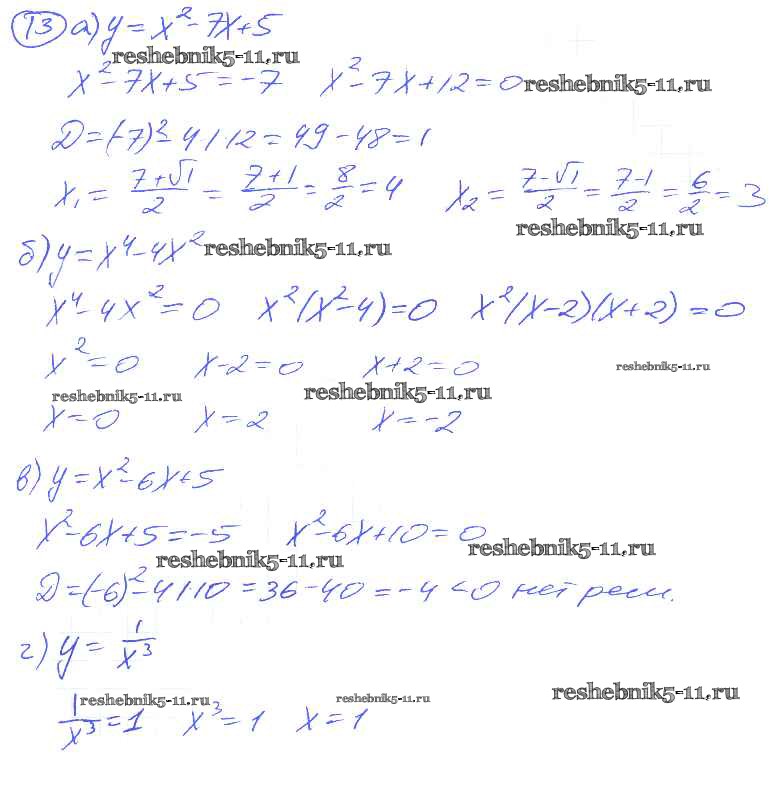 13 а) y = x² - 7x + 5
reshebnik5-11.ru
x² - 7x + 5 = -7 x² - 7x + 12 = 0 reshebnik5-11.ru
D = (-7)² - 4·1·12 = 49 - 48 = 1
x₁ = (7+√1)/2 = (7+1)/2 = 8/2 = 4 x₂ = (7-√1)/2 = (7-1)/2 = 6/2 = 3
reshebnik5-11.ru
б) y = x⁴ - 4x² reshebnik5-11.ru
x⁴ - 4x² = 0 x²(x² - 4) = 0 x²(x-2)(x+2) = 0
x² = 0 x-2 = 0 x+2 = 0 reshebnik5-11.ru
reshebnik5-11.ru reshebnik5-11.ru
x = 0 x = 2 x = -2
в) y = x² - 6x + 5
x² - 6x + 5 = -5 x² - 6x + 10 = 0
reshebnik5-11.ru reshebnik5-11.ru
D = (-6)² - 4·1·10 = 36 - 40 = -4 < 0 нет реш.
г) y = 1/x³
reshebnik5-11.ru reshebnik5-11.ru reshebnik5-11.ru
1/x³ = 1 x³ = 1 x = 1